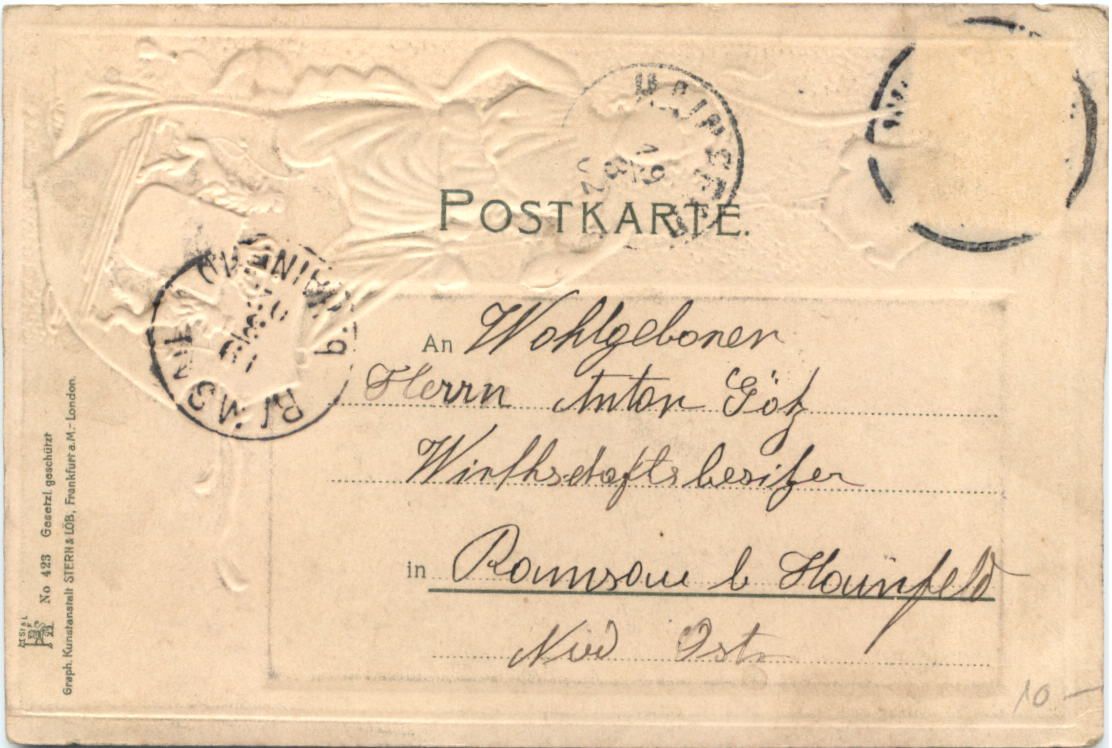 POSTKARTE.
An Wohlgeborner
Herrn Anton Götz
Wirthschaftsbesitzer
in Ramsau b Hainfeld
Nied Östr
RAMSAU
B. HAINFELD
19
No 423 Gesetzl. geschützt
Graph. Kunstanstalt STERN & LÖB, Frankfurt a.M.-London.
10 —